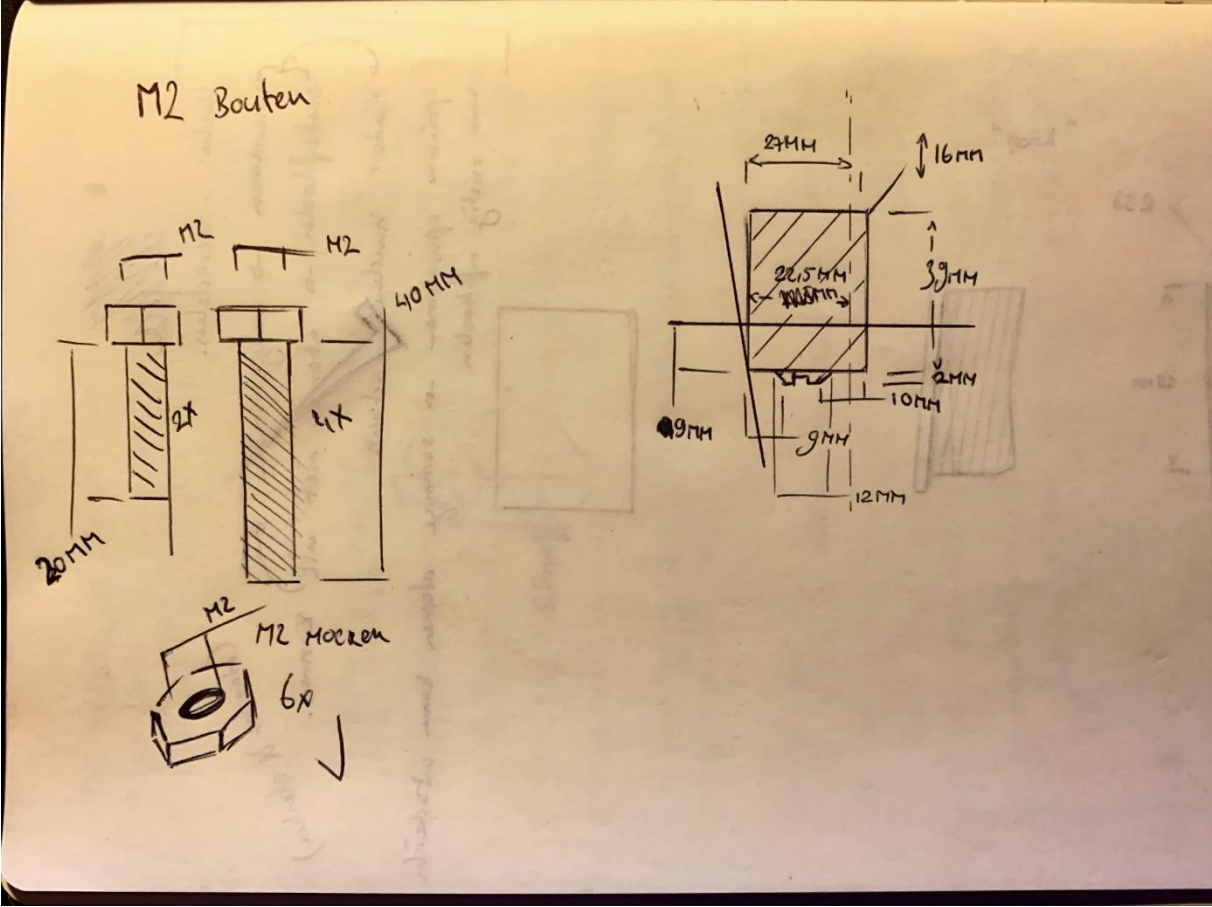 M2 Bouten
M2
M2
40MM
2x
4x
20MM
M2
M2 Moeren
6x
27MM
16MM
22,5MM
39MM
2MM
10MM
9MM
9MM
12MM